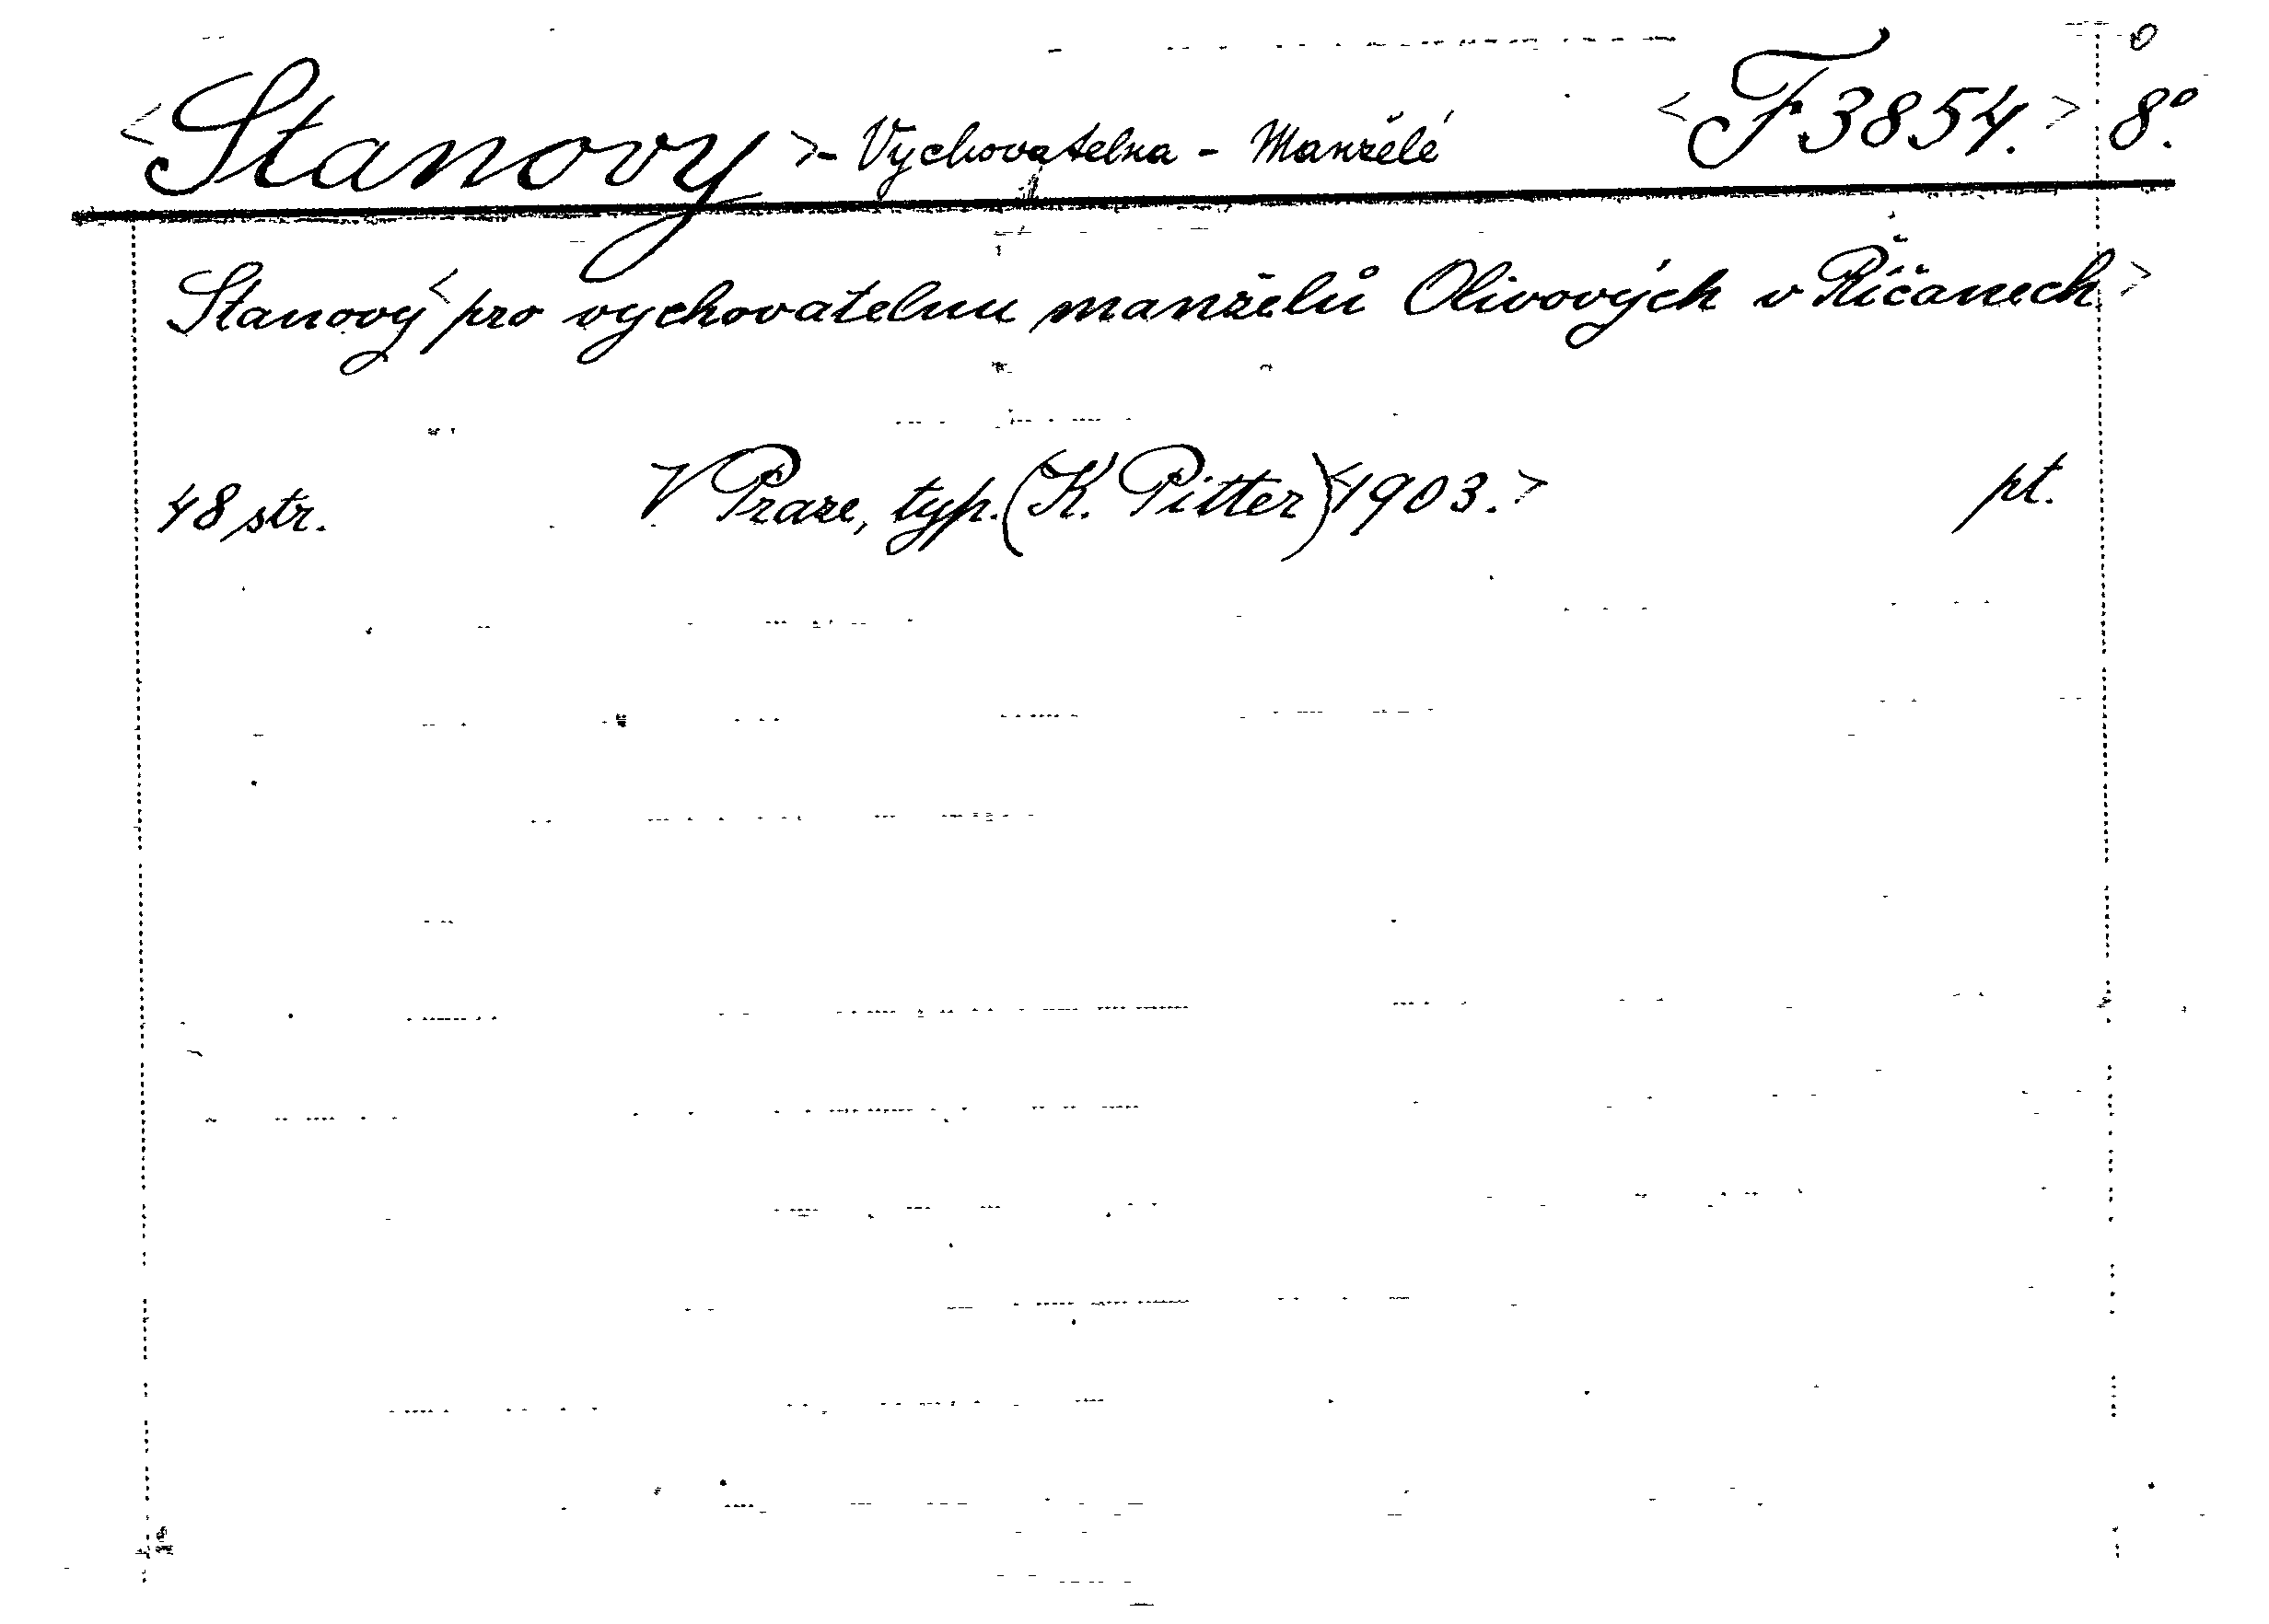 <Stanovy>- Vychovatelna - Manželé <F 3854.> 8°.
Stanovy <pro vychovatelnu manželů Olivových v Říčanech>
48 str. V Praze, typ. (K. Pitter) <1903.> pt.